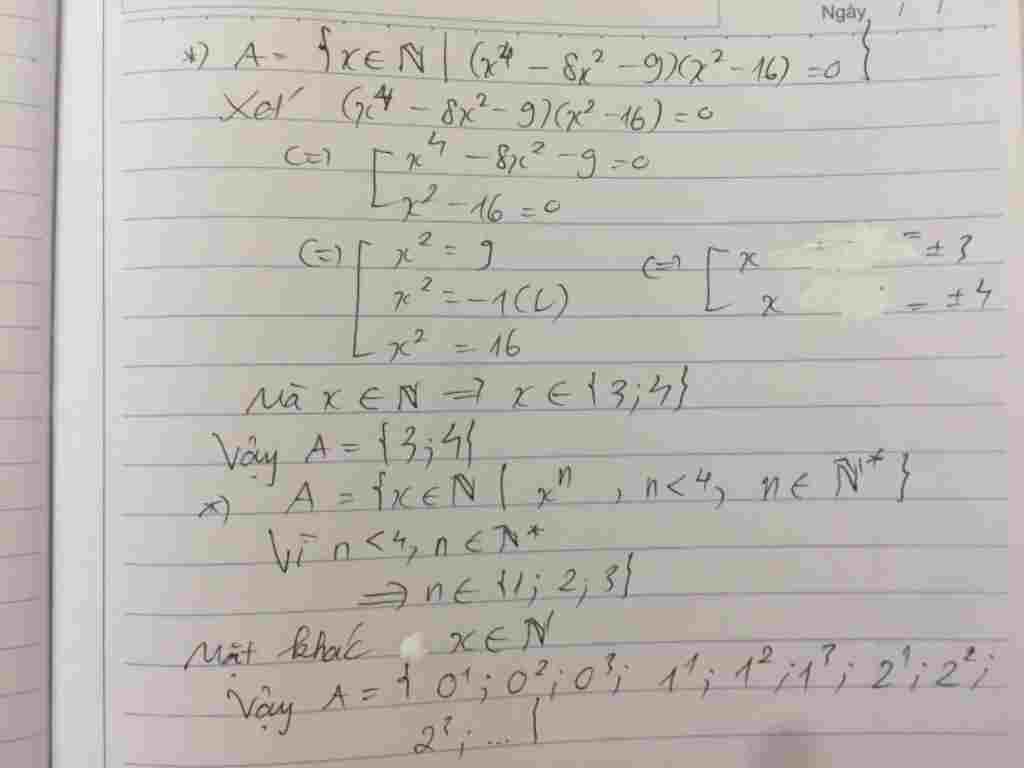 Ngày / /
*) A = {x ∈ ℕ | (x⁴ - 8x² - 9)(x² - 16) = 0}
Xét (x⁴ - 8x² - 9)(x² - 16) = 0
(=) [ x⁴ - 8x² - 9 = 0
x² - 16 = 0
(=) [ x² = 9 (=) [ x = ± 3
x² = -1 (L) x = ± 4
x² = 16
Mà x ∈ ℕ => x ∈ {3; 4}
Vậy A = {3; 4}
*) A = {x ∈ ℕ | xⁿ , n < 4, n ∈ ℕ*}
Vì n < 4, n ∈ ℕ*
=> n ∈ {1; 2; 3}
Mặt khác x ∈ ℕ
Vậy A = { 0¹; 0²; 0³; 1¹; 1²; 1³; 2¹; 2²;
2³; ... }